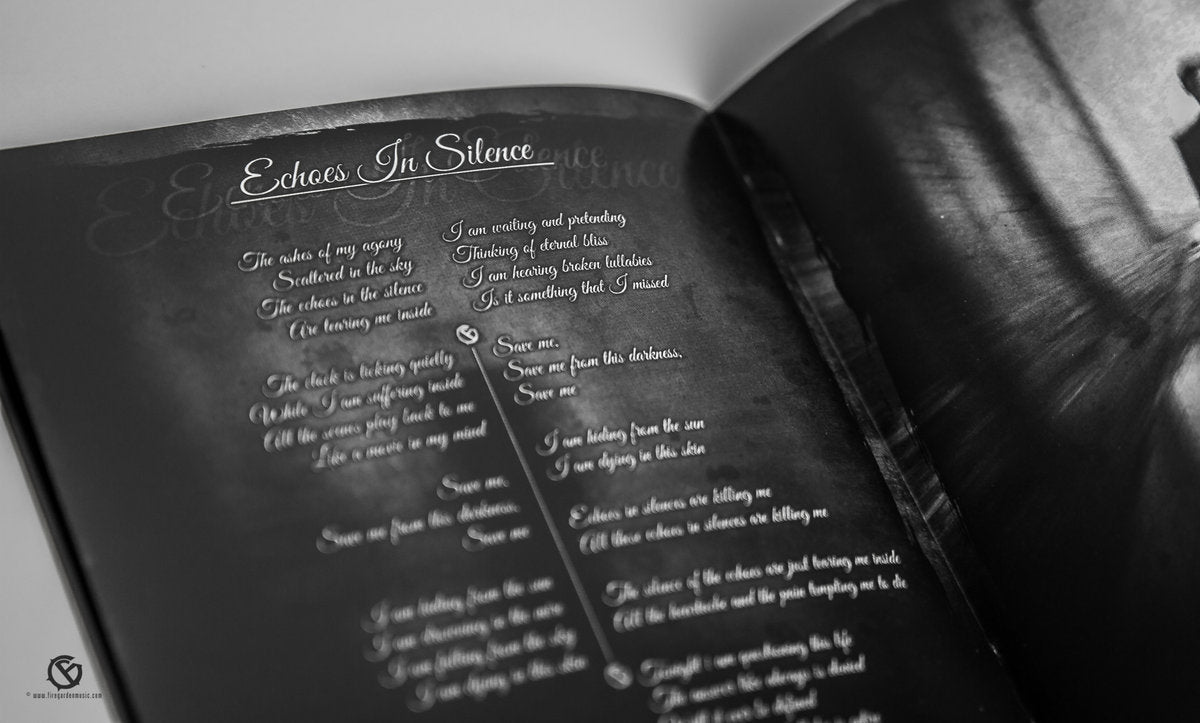 Echoes In Silence
The ashes of my agony
Scattered in the sky
The echoes in the silence
Are tearing me inside
The clock is ticking quietly
While I am suffering inside
All the scenes play back to me
Like a movie in my mind
Save me,
Save me from this darkness,
Save me
I am hiding from the sun
I am drowning in the
I am falling from the sky
I am dying in this skin
I am waiting and pretending
Thinking of eternal bliss
I am hearing broken lullabies
Is it something that I missed
Save me,
Save me from this darkness,
Save me
I am hiding from the sun
I am dying in this skin
Echoes in silences are killing me
All these echoes in silences are killing me
The silence of the echoes are just tearing me inside
All the heartache and the pain tempting me to die
Tonight i am questioning this life
The answer like always is denied
© www.firegardenmusic.com